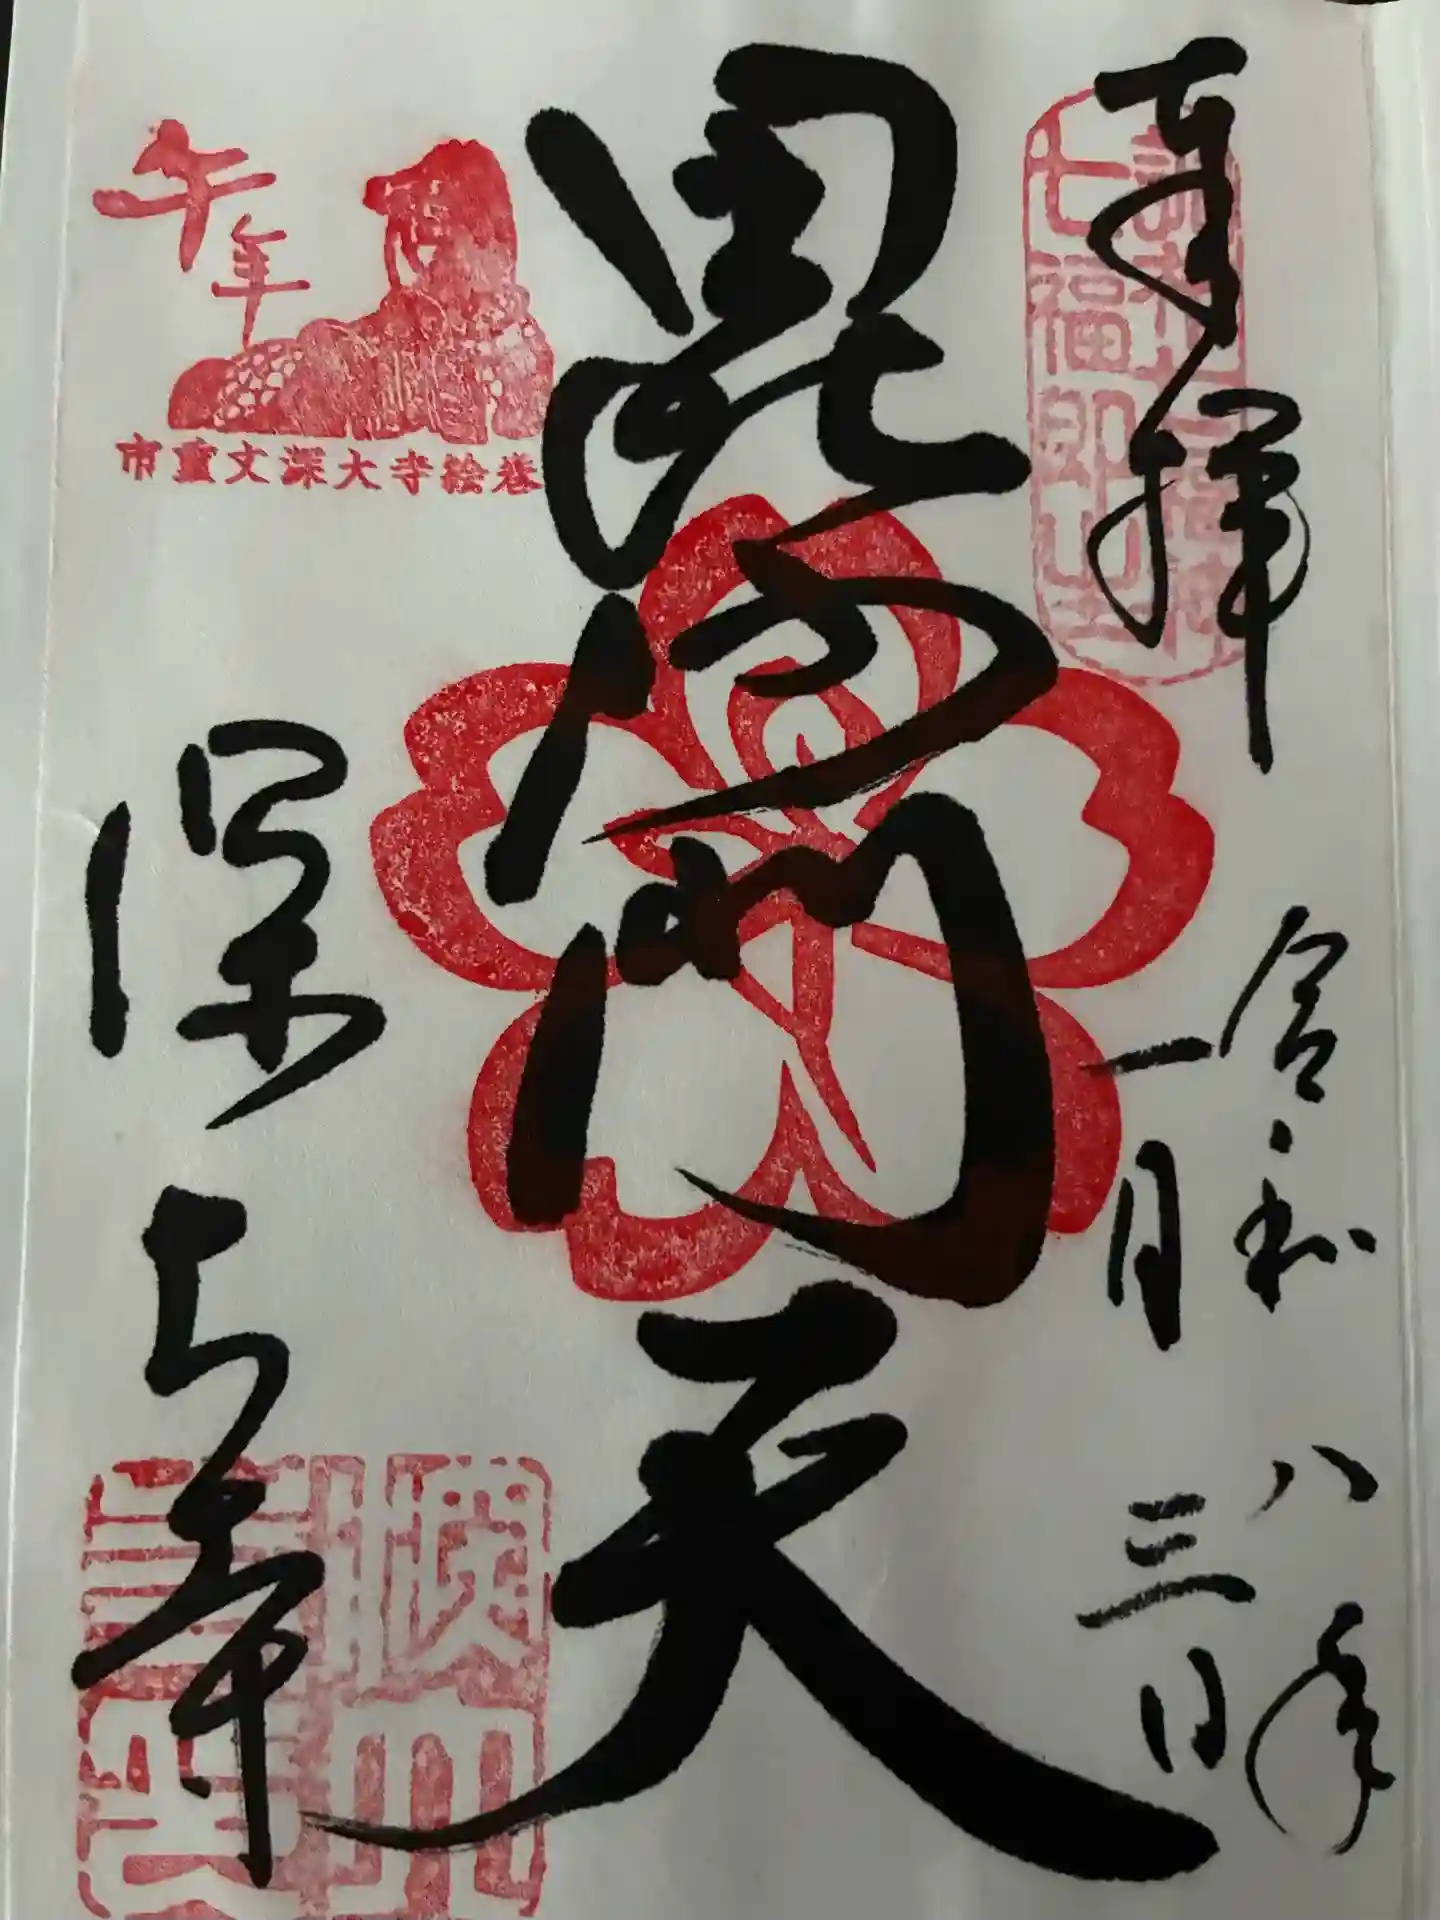 奉拝
令和八年
一月三日
毘沙門天
深大寺
午年
市重文深大寺絵巻
七福即生